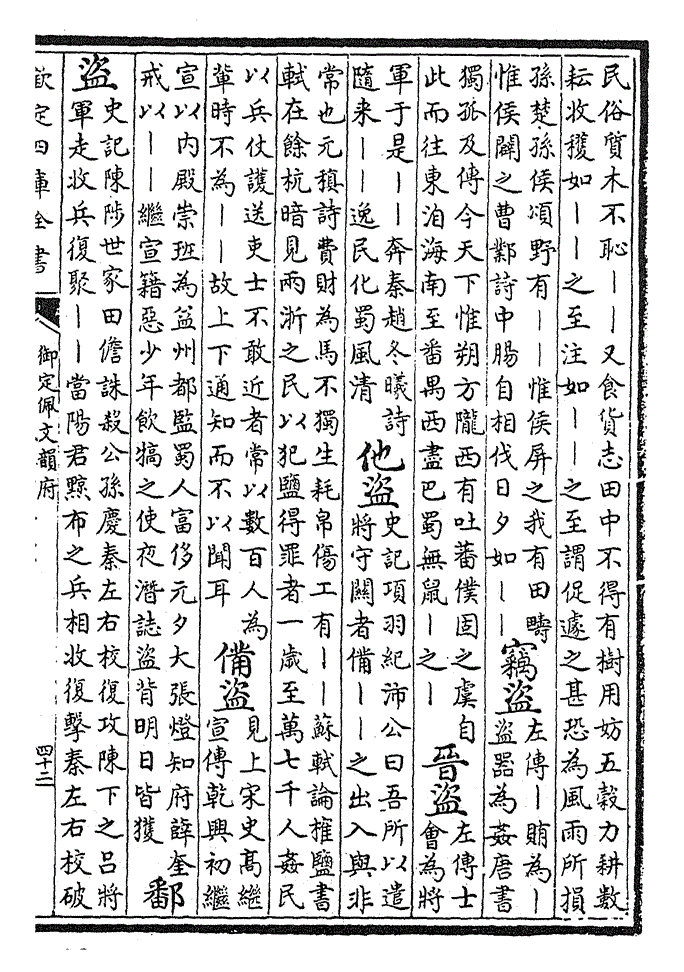 民俗質木不恥丨丨又食貨志田中不得有樹用妨五穀力耕數
耘收穫如丨丨之至注如丨丨之至謂促遽之甚恐為風雨所損
孫楚孫侯頌野有丨丨惟侯屏之我有田疇
惟侯闢之曹鄴詩中腸自相伐日夕如丨丨
竊盜
左傳丨賄為丨
盜器為姦唐書
獨孤及傳今天下惟朔方隴西有吐蕃僕固之虞自
此而往東洎海南至番禺西盡巴蜀無鼠丨之丨
晉盜
左傳士
會為將
軍于是丨丨奔秦趙冬曦詩
隨来丨丨逸民化蜀風清
他盜
史記項羽紀沛公曰吾所以遣
將守關者備丨丨之出入與非
常也元稹詩費財為馬不獨生耗帛傷工有丨丨蘇軾論榷鹽書
軾在餘杭暗見兩浙之民以犯鹽得罪者一歲至萬七千人姦民
以兵仗護送吏士不敢近者常以數百人為
輩時不為丨丨故上下通知而不以聞耳
備盜
見上宋史高繼
宣傳乾興初繼
宣以内殿崇班為益州都監蜀人富侈元夕大張燈知府薛奎
戒以丨丨繼宣籍惡少年飲犒之使夜潛誌盜背明日皆獲
鄱
盜
史記陳涉世家田儋誅殺公孫慶秦左右校復攻陳下之吕將
軍走收兵復聚丨丨當陽君黥布之兵相收復擊秦左右校破
欽定四庫全書
御定佩文韻府
四十二